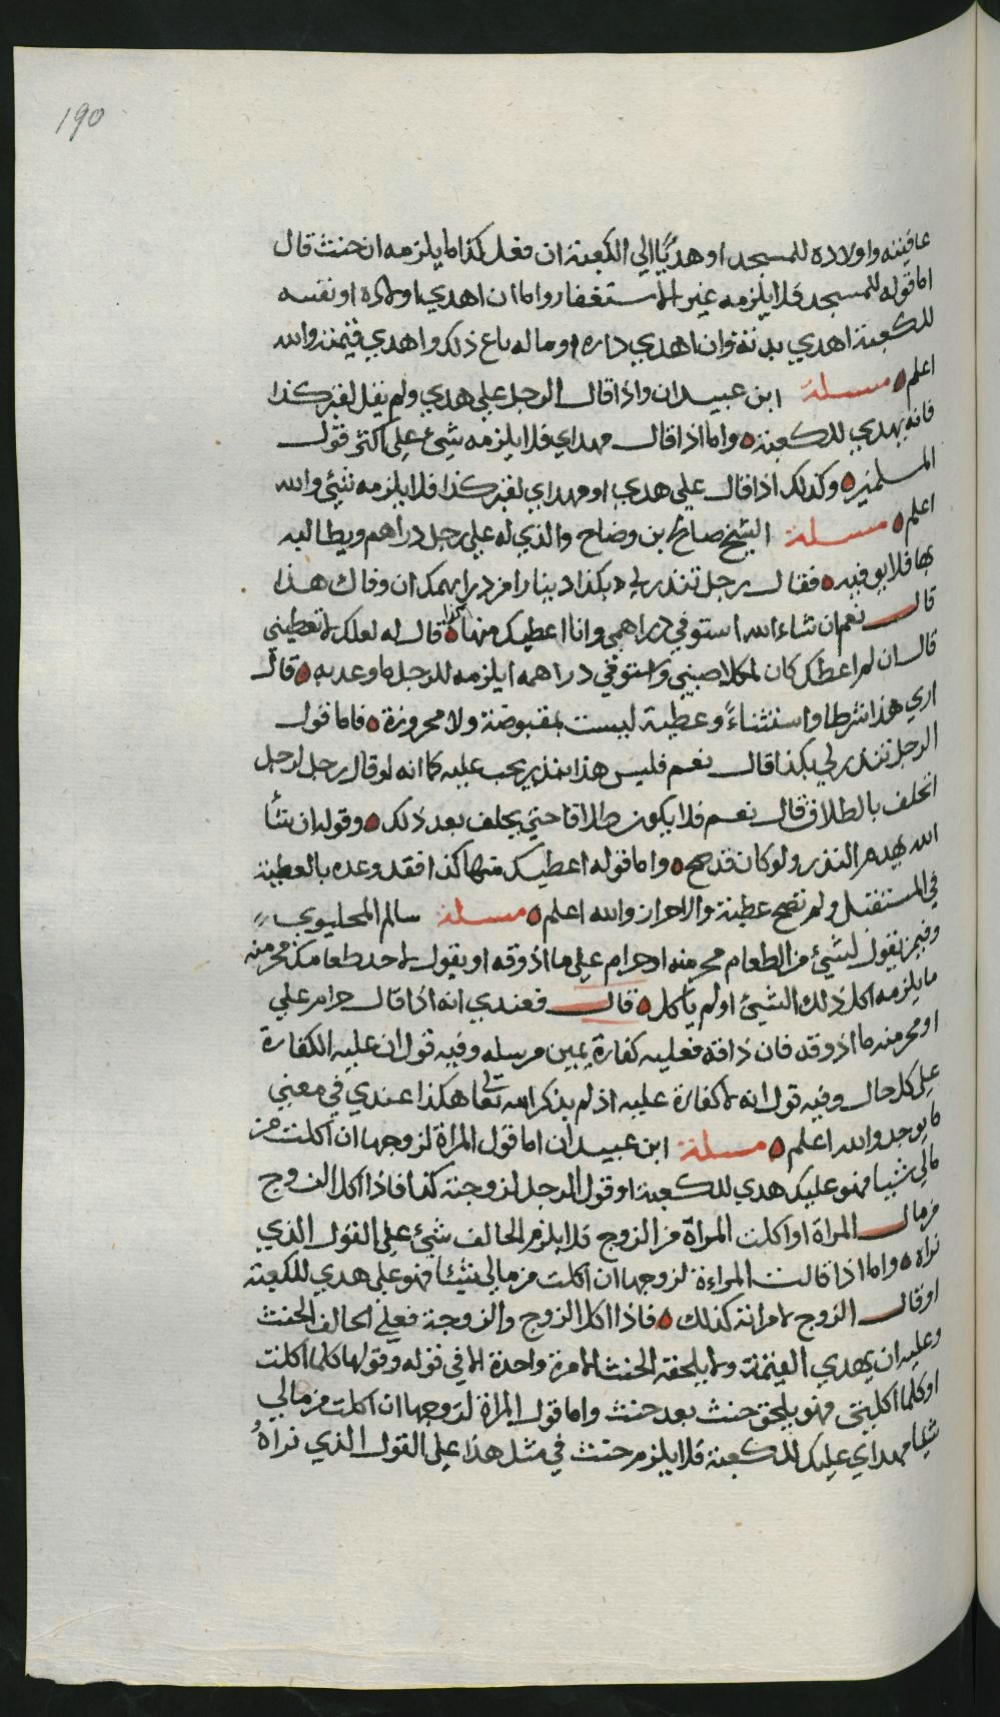 190
عافيته واولاده للمسجد او هديًا الي الكعبة ان فعل كذا ما يلزمه ان حنث قال
اما قوله للمسجد فلا يلزمه غير الاستغفار واما ان اهدي اولاده او نفسه
للكعبة اهدي بدنة وان اهدي داره او ماله باع ذلك واهدي قيمته والله
اعلم ه مسـلة ابن عبيدان واذا قال الرجل علي هدي ولم يقل لغير كذا
فانه يهدي للكعبة ه واما اذا قال مهداي فلا يلزمه شيء علي اكثر قول
المسلمين ه وكذلك اذا قال علي هدي او مهداي لغير كذا فلا يلزمه شيء والله
اعلم ه مسـلة الشيخ صالح ابن وضاح والذي له علي رجل دراهم ويطالبه
بها فلا يوفيه ه فقال رجل تنذر لي بكذا دينارا من دراهمك ان وفاك هذا
قال نعم ان شاء الله استوفي دراهمي وانا اعطيك منها كذا ه قال له لعلك لا تعطيني
قال ان لم اعطك كان واستوفي دراهمه ايلزمه للرجل ما وعد به ه قال
اري هذا شرطا واستثناءً وعطية ليست بمقبوضة ولا محروزة ه فاما قول
الرجل تنذر لي بكذا قال نعم فليس هذا بنذر يجب عليه كما انه لو قال رجل لرجل
اتحلف بالطلاق قال نعم فلا يكون طلاقا حتي يحلف بعد ذلك ه وقوله ان شأ
الله يهدم النذر ولو كان قد صح ه واما قوله اعطيك منها كذا فقد وعده بالعطية
في المستقبل ولم تصح عطية ولا احراز والله اعلم ه مسـلة سالم المحليوي
وفيمن يقول لشيء من الطعام محرمنه او حرام علي ما اذوقه او يقول لاحد طعامك محرمنه
ما يلزمه اكل ذلك الشيء او لم يأكل ه قال فعندي انه اذا قال حرام علي
او محرمنه ما اذوقه فان ذاقه فعليه كفارة يمين مرسله وفيه قول ان عليه الكفارة
علي كل حال وفيه قول انه لا كفارة عليه اذ لم يذكر الله تعالي هكذا عندي في معني
ما يوجد والله اعلم ه مسـلة ابن عبيدان اما قول المراة لزوجها ان اكلت من
مالي شيا فهو عليك هدي للكعبة او قول الرجل لزوجته كذا فاذا اكل الزوج
من مال المراة او اكلت المراة من الزوج فلا يلزم الحالف شيء علي القول الذي
نراه ه واما اذا قالت المراءة لزوجها ان اكلت من مالي شيئا فهو علي هدي للكعبة
او قال الزوج لامراته كذلك ه فاذا اكل الزوج والزوجة فعلي الحالف الحنث
وعليه ان يهدي القيمة ولا يلحقه الحنث الا مرة واحدة الا في قوله وقولها كلما اكلت
او كلما اكلتي فهو يلحق حنث بعد حنث واما قول المراة لزوجها ان اكلت من مالي
شيئا مهداي عليك للكعبة فلا يلزم حنث في مثل هذا علي القول الذي نراهُ